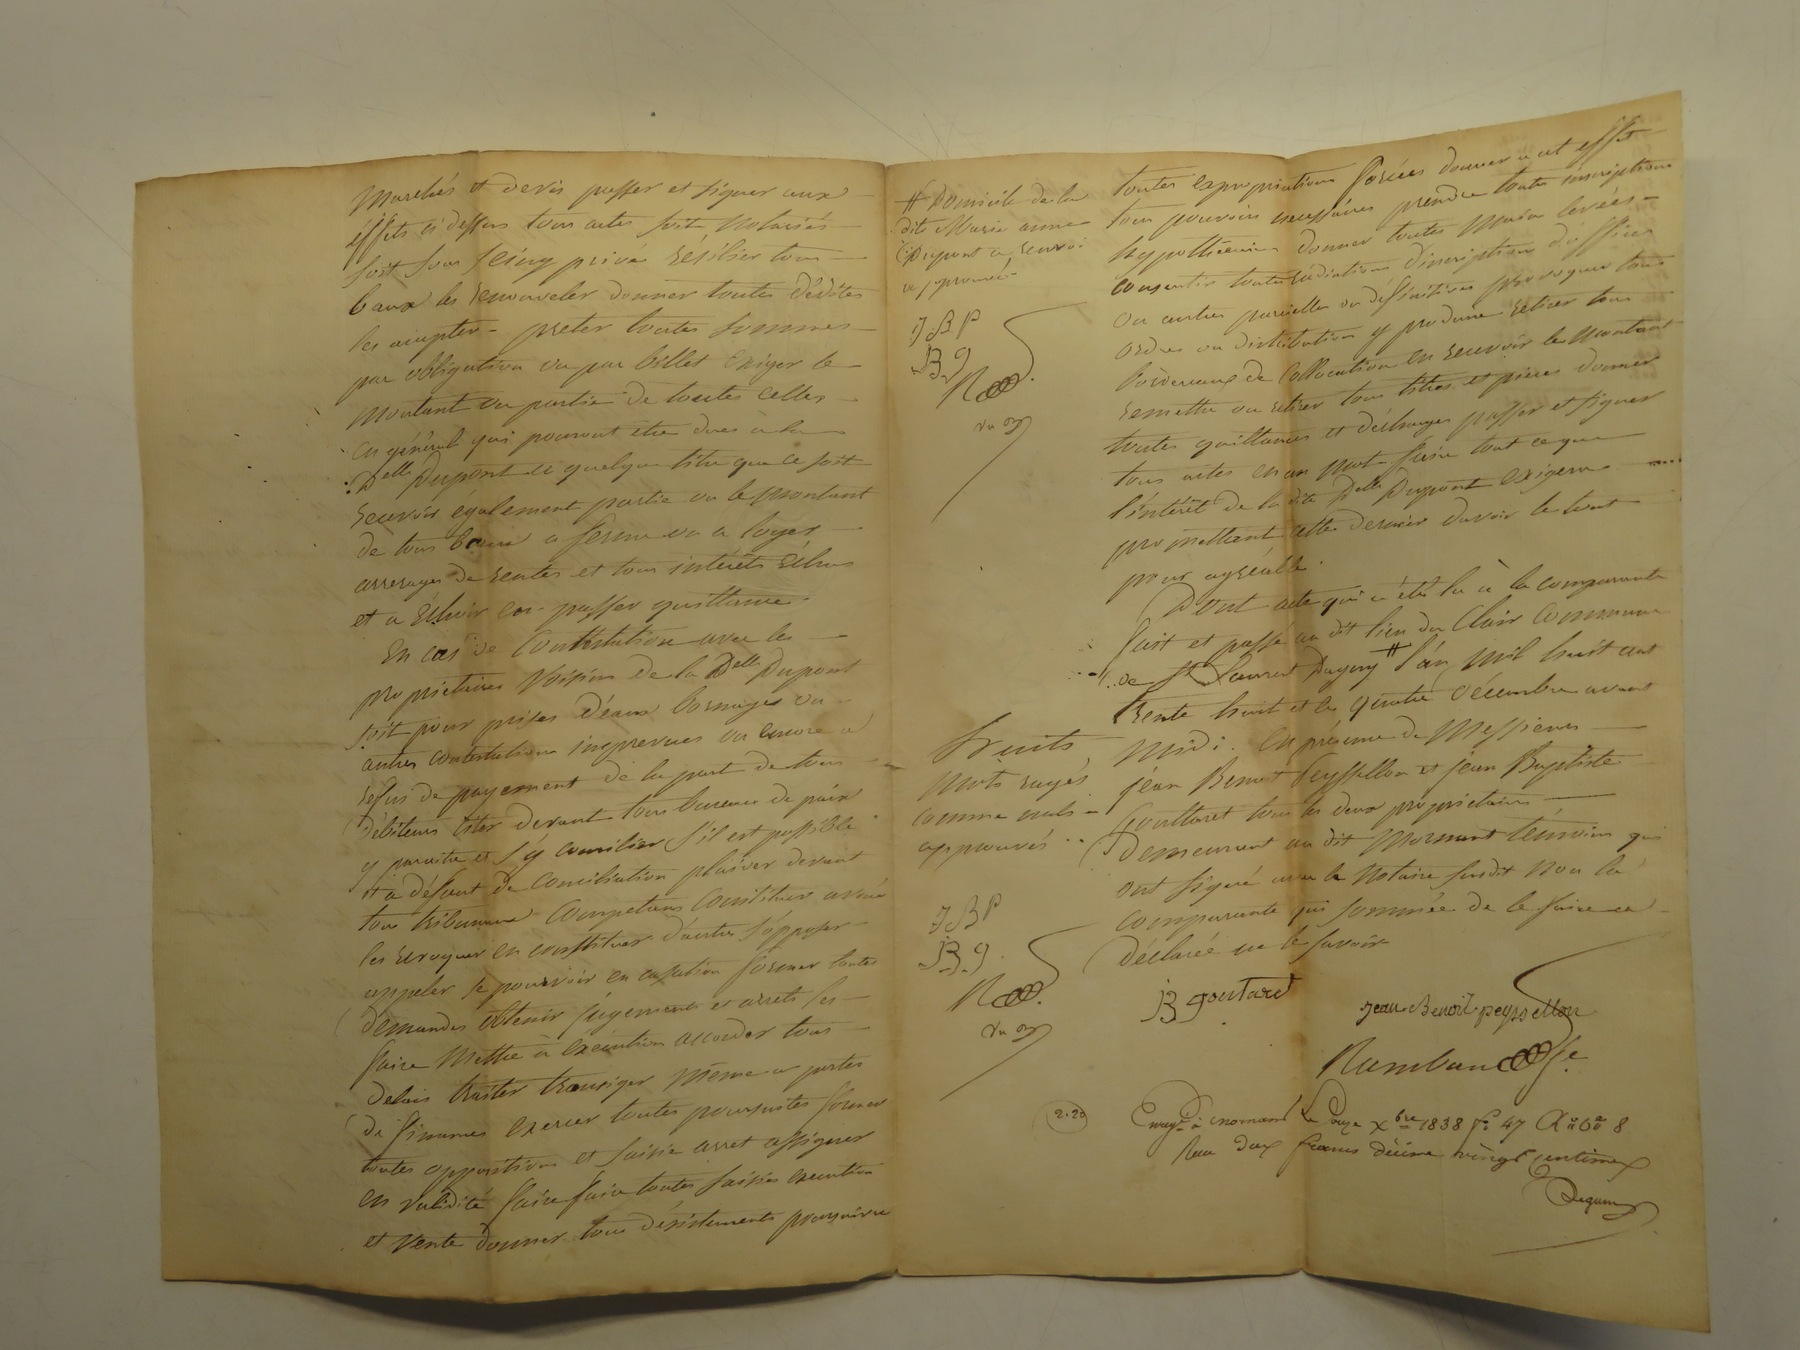 Marchés et devis passer et signer aux
effets ci dessus tous actes soit Notariés
soit sous seing privé résilier tous
baux les renouveler donner toutes dédites
les accepter - preter toutes sommes
par obligation ou par billet exiger le
montant ou partie de toutes celles
en général qui pouront etre dues à la
Delle Dupont a quelque titre que ce soit
recevoir également partie ou le montant
de tous baux a ferme ou a loyer
arrerages de rentes et tous intérêts échus
et a échoir en passer quittance
En cas de Contestation avec les
propriétaires Voisins de la Delle Dupont
soit pour prises d'eaux bornages ou
autres contestations imprevues ou encore à
refus de payement de la part de tous
débiteurs citer devant tous bureaux de paix
y paroitre et s'y concilier s'il est possible
et a défaut de conciliation plaider devant
tous tribunaux Compétens Constituer avoué
les révoquer en constituer d'autres s'opposer
appeler se pourvoir en cassation former toutes
demandes obtenir jugements et arrets les
faire Mettre a exécution accorder tous
delais traiter transiger même a pertes
de finances exercer toutes poursuites former
toutes oppositions et saisie arret assigner
en validité faire faire toutes saisies execution
et Vente donner tous désistements poursuivre
# Domicile de la
dite Marie anne
Dupont a renvoi
approuvé
JBP
B g
R
Vu
huits
mots rayés
comme nuls
approuvés
JBP
B g
R
Vu
toutes expropriations forcées donner a cet effet
tous pouvoirs necessaires prendre toutes inscriptions
hypothécaires donner toutes Main levées
consentir toutes radiations d'inscriptions d'office
ou autres partielles ou définitives provoquer tous
ordres ou distribution y produire retirer tous
borderaux de Collocation en recevoir le Montant
remettre ou retirer tous titres et pieces donner
toutes quittances et décharges passer et signer
tous actes en un mot faire tout ce que
l'intérêt de la dite Delle Dupont exigera
promettant cette derniere d'avoir le tout
pour agréable.
Dont acte qui a été lu à la comparante
fait et passé au dit lieu du Clair Commune
de St Laurent Dagny # l'an Mil huit cent
trente huit et le quatre décembre avant
Midi. En présence de Messieurs
jean Benoit Peyssellon et jean Baptiste
Gouttaret tous les deux propriétaires
demeurant au dit Mornant témoins qui
ont signé avec le Notaire susdit Non la
comparante qui sommée de le faire a
déclaré ne le savoir
JB goutaret
jean Benoit peyssellon
2.20
Enregé à mornant le onze Xbre 1838 fo 47 Ro 8
Reçu deux francs décime vingt centimes